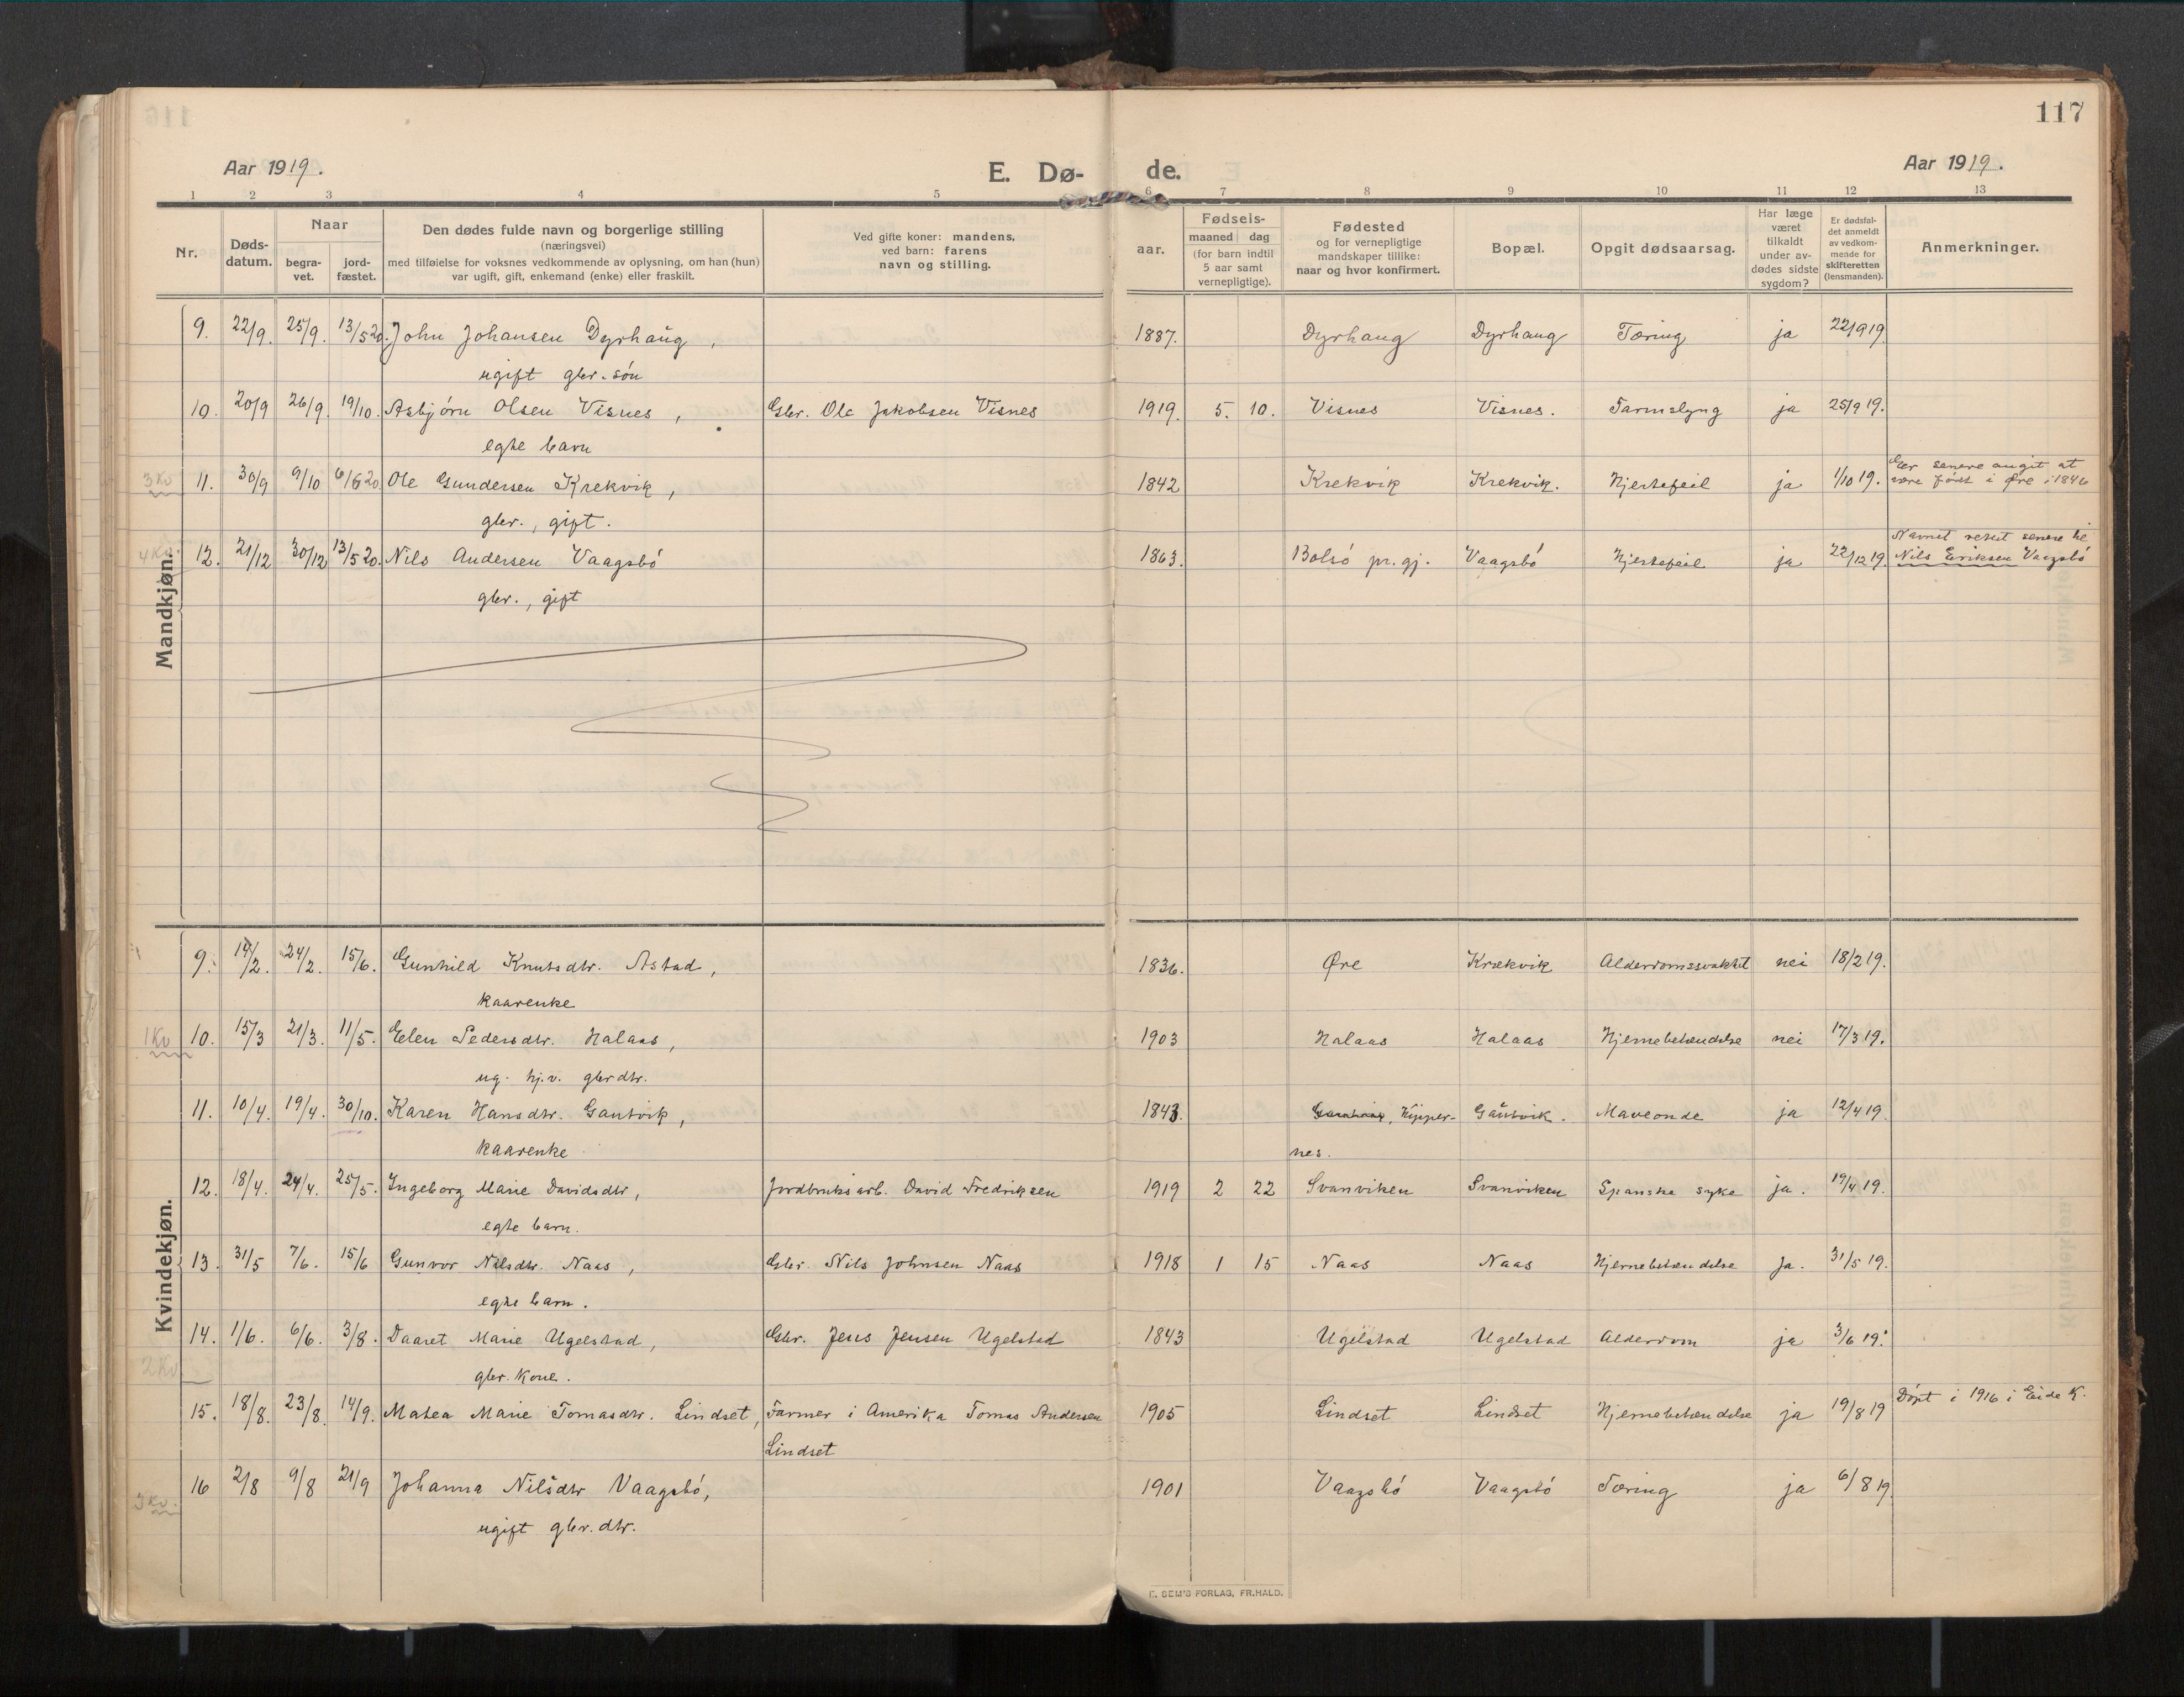 117
Aar 1919.
E. Dø-
de.
Aar 1919.
1 2 3 4 5 6 7 8 9 10 11 12 13
Nr.
Døds-
datum.
Naar
begra-
vet.
jord-
fæstet.
Den dødes fulde navn og borgerlige stilling
(næringsvei)
med tilføielse for voksnes vedkommende av oplysning, om han (hun)
var ugift, gift, enkemand (enke) eller fraskilt.
Ved gifte koner: mandens,
ved barn: farens
navn og stilling.
aar.
Fødsels-
maaned dag
(for barn indtil
5 aar samt
vernepligtige).
Fødested
og for vernepligtige
mandskaper tillike:
naar og hvor konfirmert.
Bopæl.
Opgit dødsaarsag.
Har læge
været
tilkaldt
under av-
dødes sidste
sygdom?
Er dødsfal-
det anmeldt
av vedkom-
mende for
skifteretten
(lensmanden).
Anmerkninger.
Mandkjøn.
9. 22/9. 25/9. 13/5 20. John Johansen Dyrhaug, 1887. Dyrhaug Dyrhaug Tæring ja 22/9 19.
ugift gbr. søn
10. 20/9 26/9. 19/10. Asbjørn Olsen Visnes, Gbr. Ole Jakobsen Visnes 1919. 5. 10. Visnes Visnes. Tarmslyng ja 25/9 19.
egte barn
3 Kv 11. 30/9 9/10 6/6 20. Ole Gundersen Krekvik, 1842 Krekvik Krekvik. Hjertefeil ja 1/10 19. Er senere angit at
være født i Øre i 1846
gbr., gift.
4 Kv. 12. 21/12 30/12 13/5 20. Nils Andersen Vaagsbø 1863. Bolsø pr.gj. Vaagsbø Hjertefeil ja 22/12 19. Navnet rettet senere til
Nils Eriksen Vaagsbø
gbr., gift
Kvindekjøn.
9. 14/2. 24/2. 15/6. Gunhild Knutsdtr. Astad, 1836. Øre Krekvik Alderdomssvakhet nei 18/2 19.
kaarenke
1 Kv 10. 15/3 21/3. 11/5. Elen Pedersdtr. Halaas, 1903 Halaas Halaas Hjernebetændelse nei 17/3 19.
ug. hj.v. gbrdtr.
11. 10/4. 19/4. 30/10. Karen Hansdtr. Gautvik, 1843. Kipper- Gautvik. Maveonde ja 12/4 19.
kaarenke nes.
12. 18/4. 24/4. 25/5. Ingeborg Marie Davidsdtr, Jordbruksarb. David Fredriksen 1919 2 22 Svanviken Svanviken Spanske syke ja. 19/4 19.
egte barn.
13. 31/5 7/6. 15/6 Gunvor Nilsdtr. Naas, Gbr. Nils Johnsen Naas 1918 1 15 Naas Naas Hjernebetændelse ja. 31/5 19.
egte barn.
14. 1/6. 6/6. 3/8. Daaret Marie Ugelstad, Gbr. Jens Jensen Ugelstad 1843 Ugelstad Ugelstad Alderdom ja 3/6 19.
2 Kv. gbr. kone.
15. 18/8. 23/8. 14/9. Matea Marie Tomasdtr. Lindset, Farmer i Amerika Tomas Andersen 1905 Lindset Lindset Hjernebetændelse ja 19/8 19 Døpt i 1916 i Eide K.
Lindset
16 2/8 9/8 21/9 Johanna Nilsdtr Vaagsbø, 1901 Vaagsbø Vaagsbø Tæring ja 6/8 19
3 Kv. ugift gbr. dtr.
E. SEM'S FORLAG, FR.HALD.